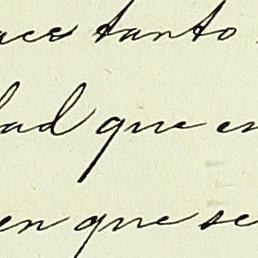 ace tanto
dad que en
en que se